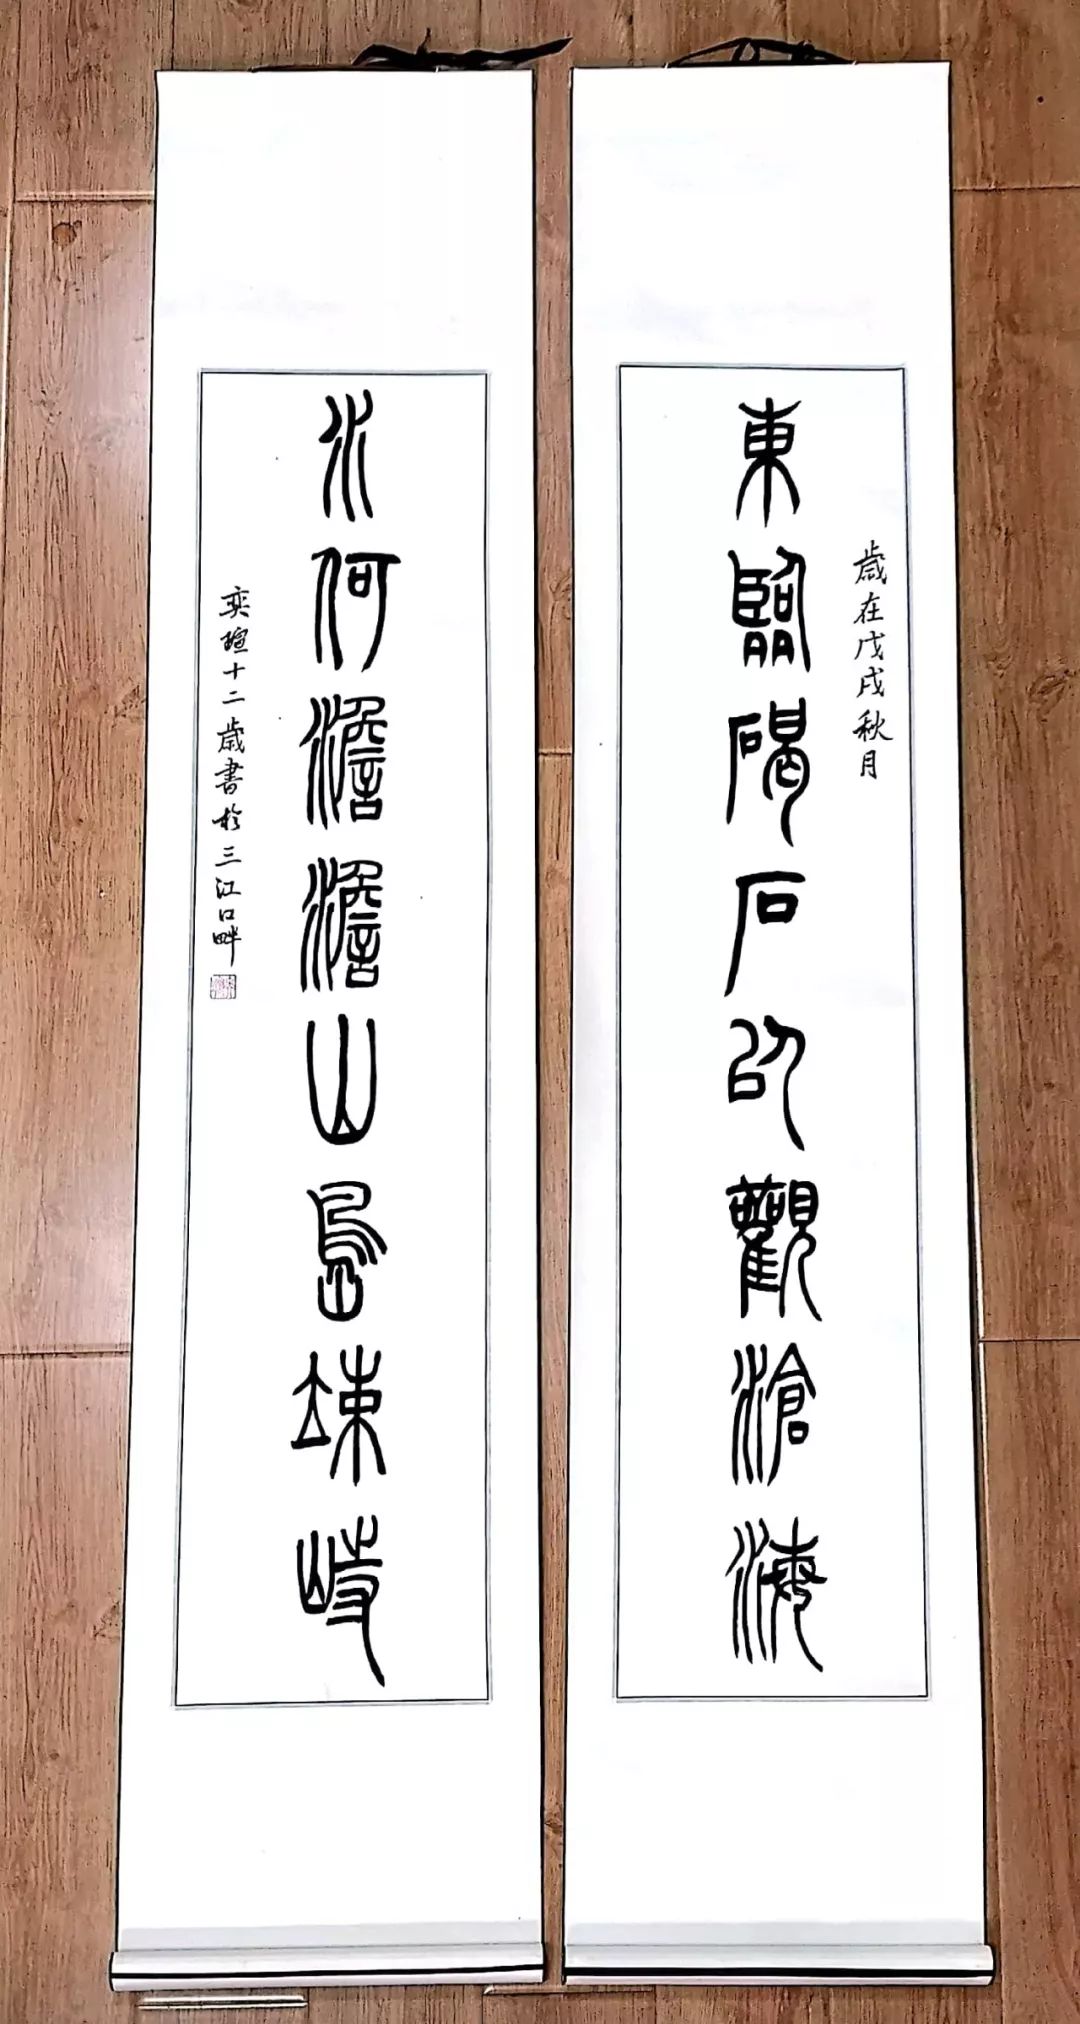 歲在戊戌秋月
東臨碣石以觀滄海
水何澹澹山島竦峙
奕瑄十二歲書於三江口畔